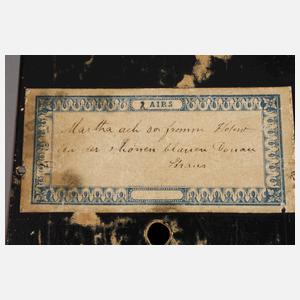 2 AIRS
Martha ach so fromm Flotow
An der schönen blauen Donau
Straus